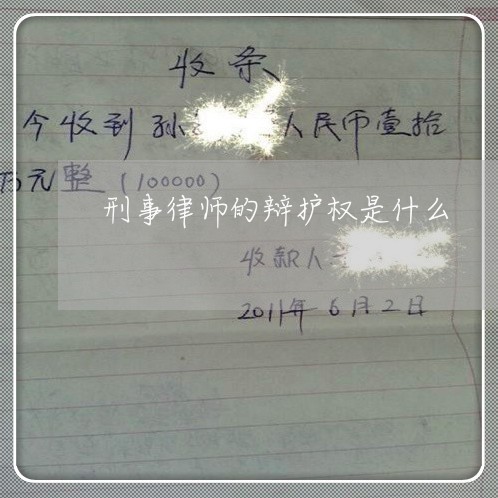 收条
今收到孙 人民币壹拾
万元整（100000）
刑事律师的辩护权是什么
收款人
2011年6月2日